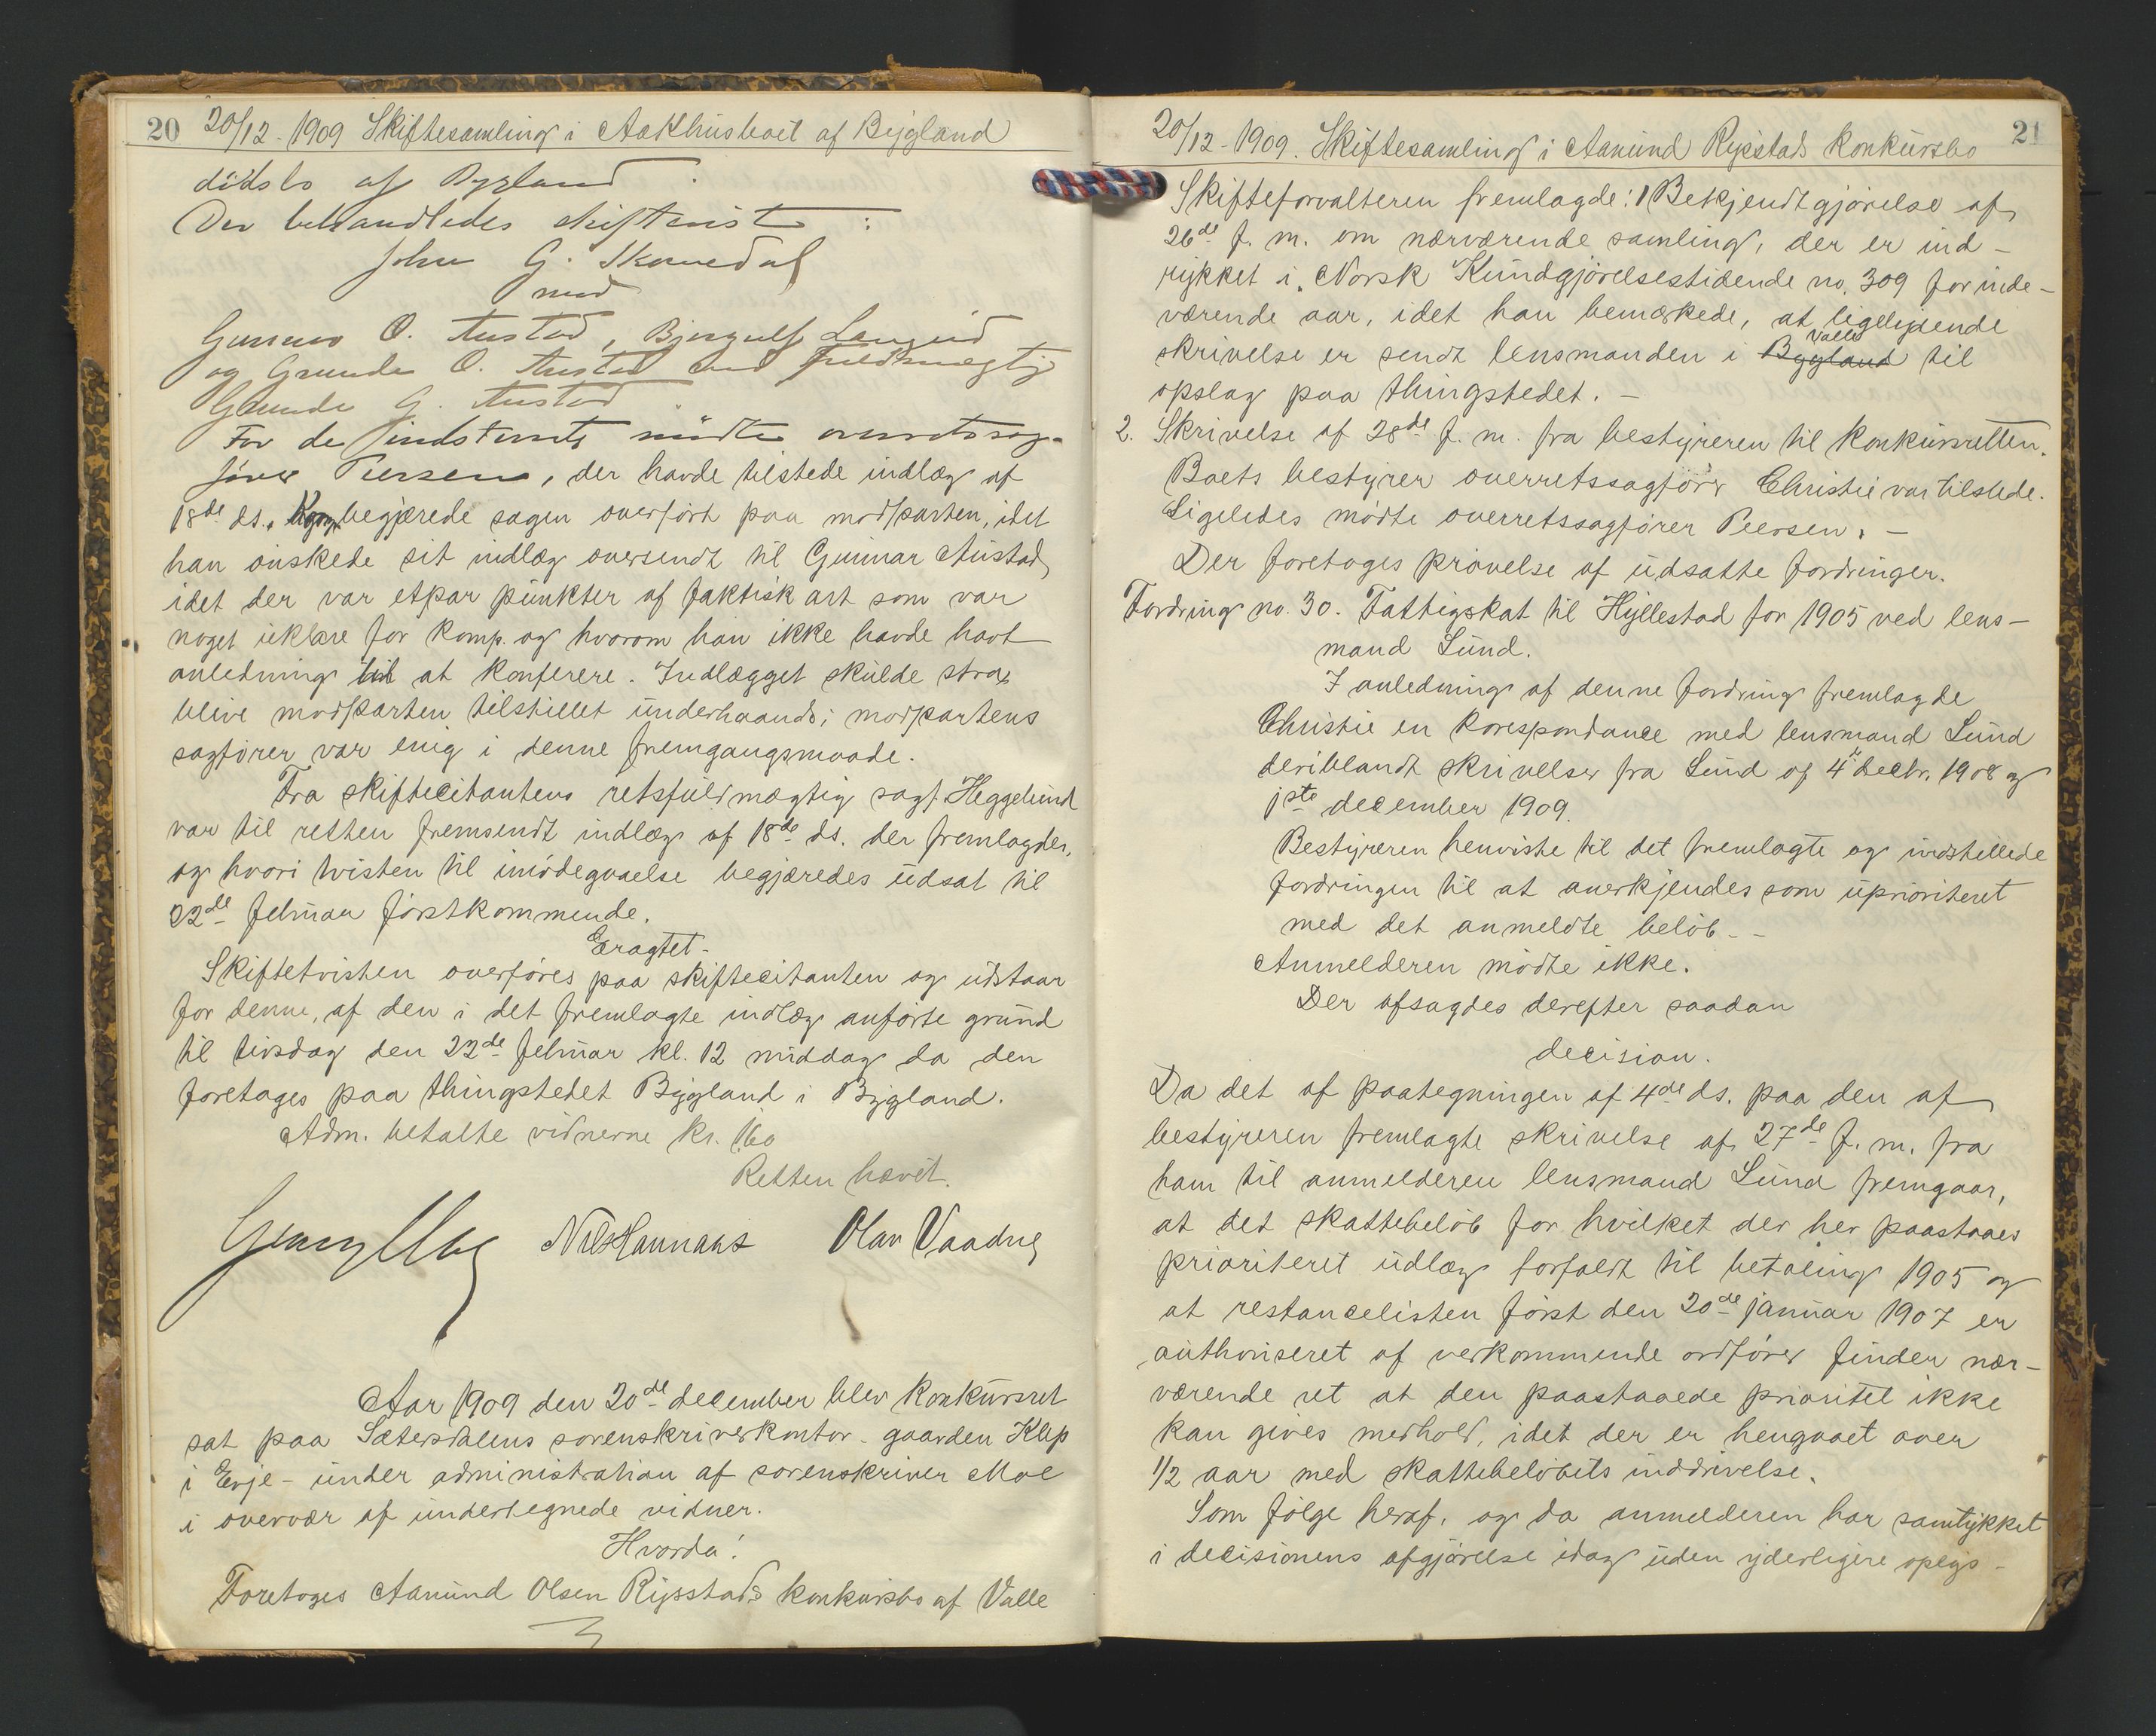 20 20/12 - 1909 Skiftesamling i Aakhusboet af Bygland
dödsbo af Bygland.
Der behandledes skiftetvist :
John G. Skomedal
mod
Gunnar O. Austad, Bjorgulf
og Gunder O. Austad ved fuldmægtig
Gunder G. Austad.
For de indstevnte mödte overretssag-
förer Peersen, der havde tilstede indlæg af
18de ds., begjærede sagen overfört paa modparten, idet
han önskede sit indlæg oversendt til Gunnar Austad,
idet der var etpar punkter af faktisk art som var
noget uklare for komp. og hvorom han ikke havde havt
anledning til at konferere. Indlægget skulde strax
blive modparten tilstillet underhaands; modpartens
sagförer var enig i denne fremgangsmaade.
Fra skiftecitantens retsfuldmægtig sagf. Heggelund
var til retten fremsendt indlæg af 18de ds. der fremlagdes,
og hvori tvisten til imödegaaelse begjæredes udsat til
22de februar förstkommende.
Eragtet.
Skiftetvisten overföres paa skiftecitanten og udstaar
for denne, af den i det fremlagte indlæg anförte grund
til tirsdag den 22de februar kl. 12 middag da den
foretages paa thingstedet Bygland i Bygland.
Adm. betalte vidnerne kr. 1.60
Retten hævet.
Nils Hannaas Olav Vaadne
Aar 1909 den 20de december blev konkursret
sat paa Sætersdalens sorenskriverkontor - gaarden Klep
i Evje - under administration af sorenskriver Moe
i overvær af undertegnede vidner.
Hvorda:
Foretoges Aanund Olsen Rysstads konkursbo af Valle
20/12 - 1909. Skiftesamling i Aanund Rysstads konkursbo 21
Skifteforvalteren fremlagde: 1 Bekjendtgjörelse af
26de f. m. om nærværende samling, der er ind-
rykket i Norsk Kundgjörelsestidende no. 309 for inde-
værende aar, idet han bemærkede, at ligelydende
skrivelse er sendt lensmanden i Bygland Valle til
opslag paa thingstedet. -
2. Skrivelse af 28de f. m. fra bestyreren til konkursretten.
Boets bestyrer overretssagförer Christie var tilstede.
Ligeledes mödte overretssagförer Peersen. -
Der foretoges prövelse af udsatte fordringer.
Fordring no. 30. Fattigskat til Hyllestad for 1905 ved lens-
mand Lund.
I anledning af denne fordring fremlagde
Christie en korespondance med lensmand Lund
deriblandt skrivelser fra Lund af 4de decbr. 1908 og
1ste december 1909.
Bestyreren henviste til det fremlagte og indstillede
fordringen til at anerkjendes som uprioriteret
med det anmeldte belöb. -
Anmelderen mödte ikke.
Der afsagdes derefter saadan
decision.
Da det af paategningen af 4de ds. paa den af
bestyreren fremlagte skrivelse af 27de f. m. fra
ham til anmelderen lensmand Lund fremgaar,
at det skattebelöb for hvilket der her paastaaes
prioriteret udlæg forfaldt til betaling 1905 og
at restancelisten först den 20de januar 1907 er
authoriseret af vedkommende ordförer finder nær-
værende ret at den paastaaede prioritet ikke
kan gives medhold, idet der er hengaaet over
1/2 aar med skattebelöbets inddrivelse.
Som fölge heraf, og da anmelderen har samtykket
i decisionens afgjörelse idag uden yderligere opgs-